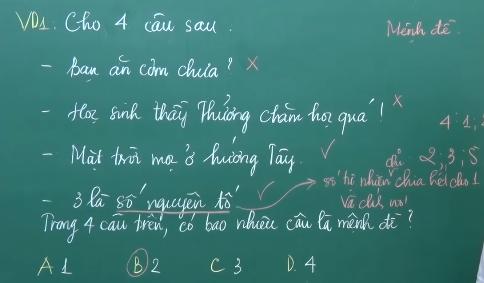 VD1. Cho 4 câu sau.
Mệnh đề
- Bạn ăn cơm chưa? X
- Học sinh thầy Thường chăm học quá! X
4: 1;
- Mặt trời mọc ở hướng Tây. ✓
2; 3; 5
- 3 là số nguyên tố ✓ → số tự nhiên chỉ chia hết cho 1
và chính nó!
Trong 4 câu trên, có bao nhiêu câu là mệnh đề?
A 1 B 2 C 3 D. 4